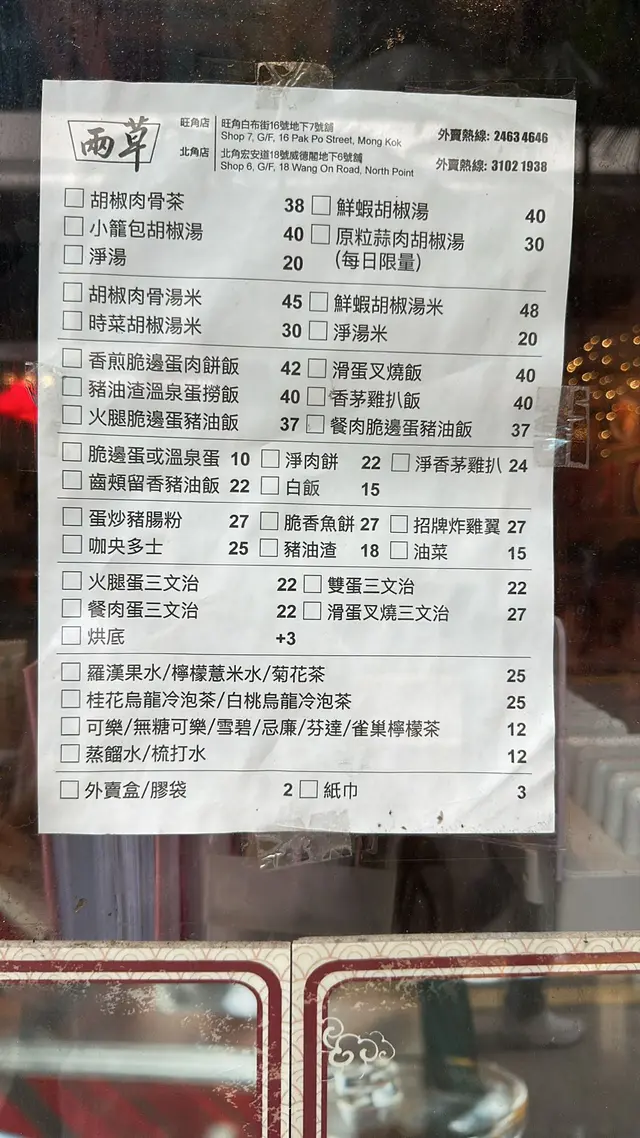 兩草
旺角店 旺角白布街16號地下7號舖 外賣熱線: 2463 4646
Shop 7, G/F, 16 Pak Po Street, Mong Kok
北角店 北角宏安道18號威德閣地下6號舖 外賣熱線: 3102 1938
Shop 6, G/F, 18 Wang On Road, North Point
胡椒肉骨茶 38 鮮蝦胡椒湯 40
小籠包胡椒湯 40 原粒蒜肉胡椒湯 30
淨湯 20 (每日限量)
胡椒肉骨湯米 45 鮮蝦胡椒湯米 48
時菜胡椒湯米 30 淨湯米 20
香煎脆邊蛋肉餅飯 42 滑蛋叉燒飯 40
豬油渣溫泉蛋撈飯 40 香茅雞扒飯 40
火腿脆邊蛋豬油飯 37 餐肉脆邊蛋豬油飯 37
脆邊蛋或溫泉蛋 10 淨肉餅 22 淨香茅雞扒 24
齒頰留香豬油飯 22 白飯 15
蛋炒豬腸粉 27 脆香魚餅 27 招牌炸雞翼 27
咖央多士 25 豬油渣 18 油菜 15
火腿蛋三文治 22 雙蛋三文治 22
餐肉蛋三文治 22 滑蛋叉燒三文治 27
烘底 +3
羅漢果水/檸檬薏米水/菊花茶 25
桂花烏龍冷泡茶/白桃烏龍冷泡茶 25
可樂/無糖可樂/雪碧/忌廉/芬達/雀巢檸檬茶 12
蒸餾水/梳打水 12
外賣盒/膠袋 2 紙巾 3